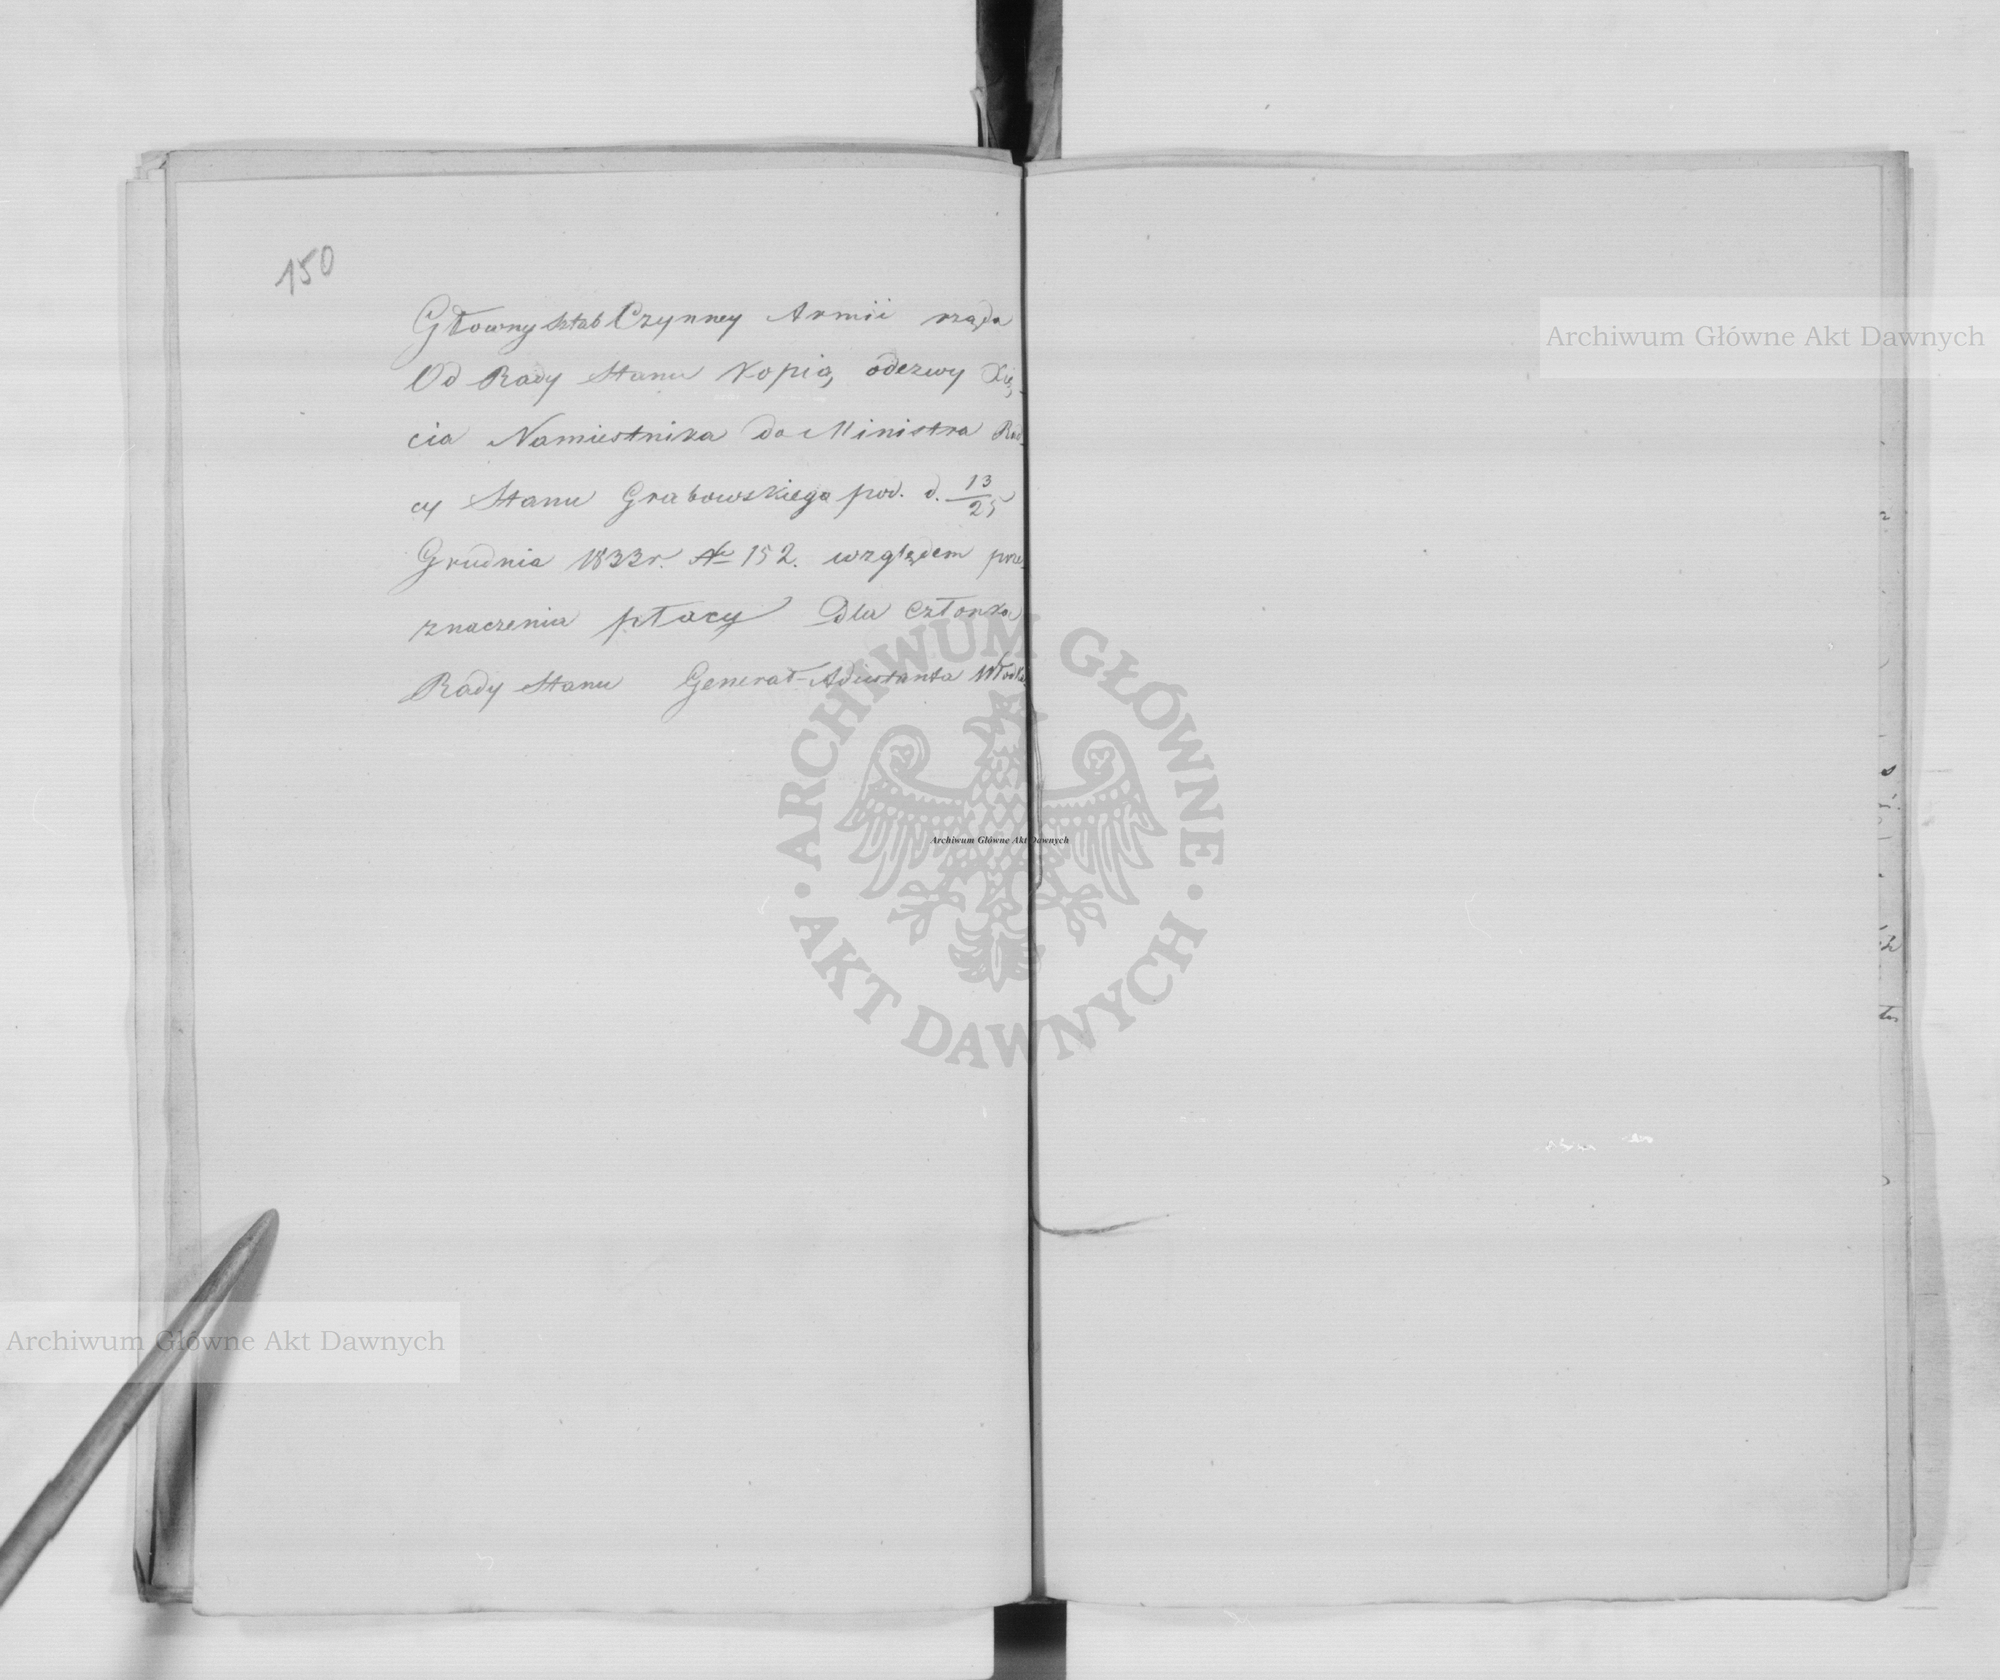 150
Główny sztab Czynney Armii rząda
Od Rady Stanu Kopią, odezwy Xię,
cia Namiestnika do Ministra Rad
cy Stanu Grabowskiego pod. d. 13/25
Grudnia 1833 r. No 152. względem prze,
znaczenia płacy Dla członka
Rady Stanu Generał-Adiutanta
Archiwum Główne Akt Dawnych
ARCHIWUM GŁÓWNE
AKT DAWNYCH
Archiwum Główne Akt Dawnych
Archiwum Główne Akt Dawnych